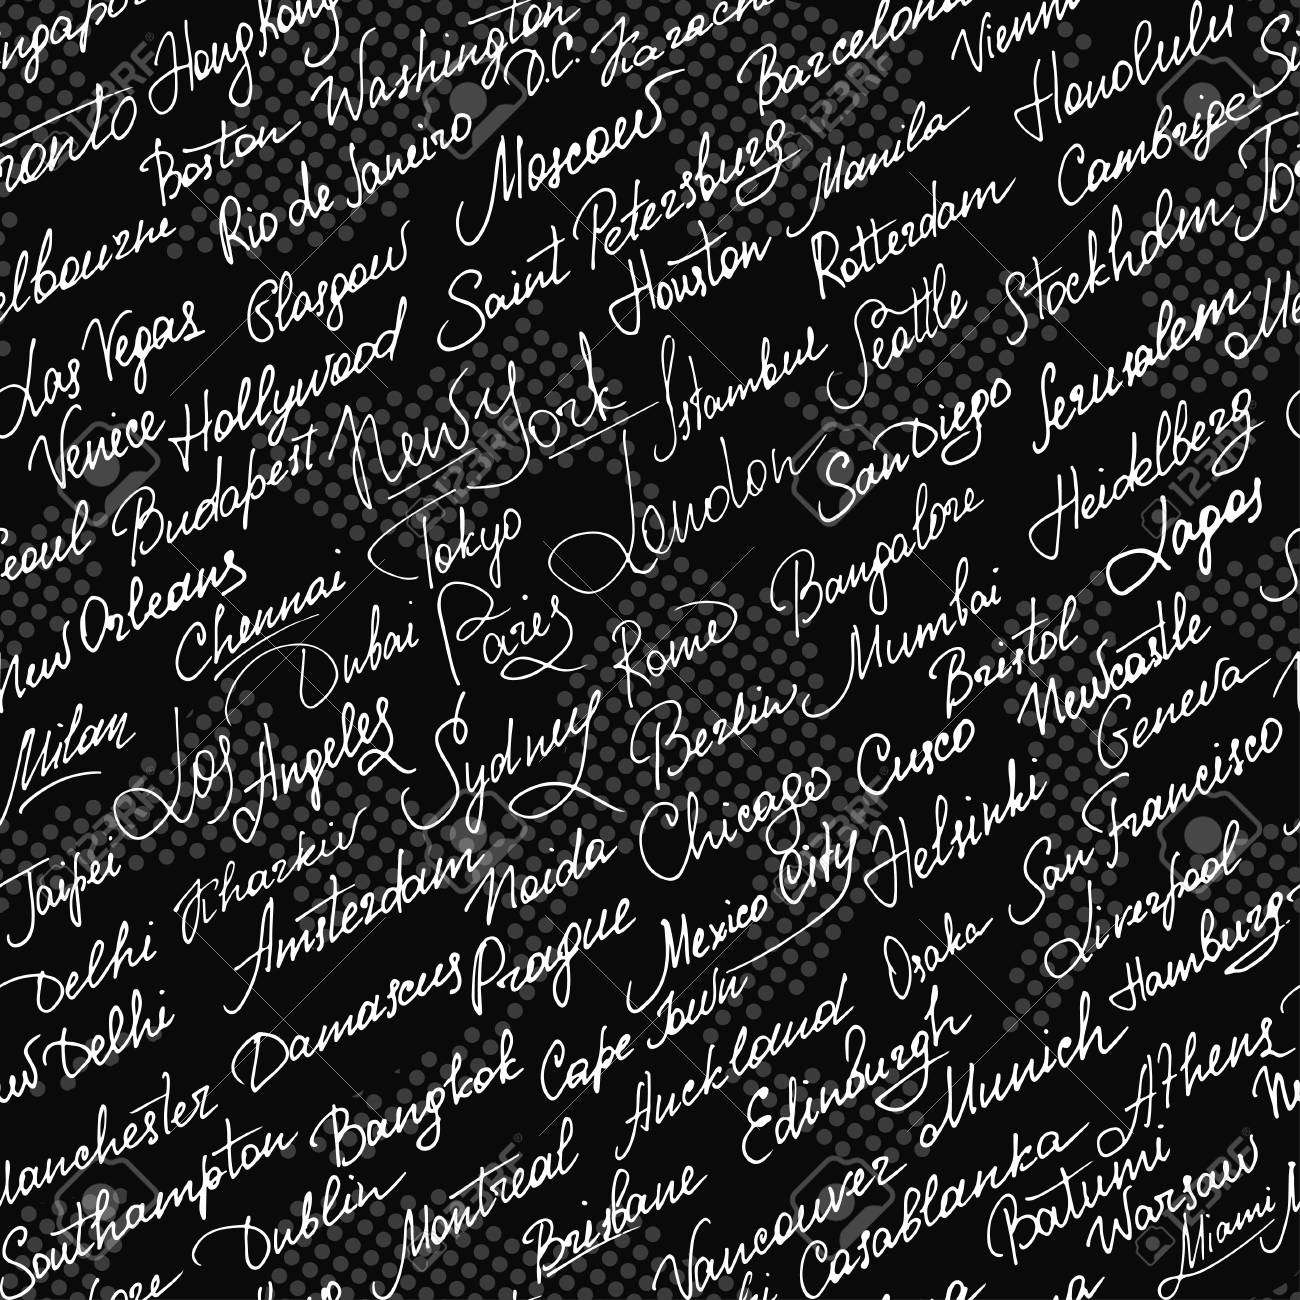 Hongkong
Washington D.C.
Karachi
Barcelona
Vienna
Honolulu
Boston
Rio de Janeiro
Moscow
Saint Petersburg
Manila
Cambrige
Las Vegas
Glasgow
Houston
Rotterdam
Stockholm
Venice
Hollywood
New York
Istambul
Seattle
Jerusalem
Budapest
Tokyo
London
San Diego
Heidelberg
New Orleans
Chennai
Dubai
Paris
Rome
Bangalore
Lagos
Milan
Los Angeles
Sydney
Berlin
Mumbai
Bristol
Newcastle
Taipei
Kharkiv
Noida
Chicago
Cusco
Geneva
Delhi
Amsterdam
Prague
Mexico City
Helsinki
San Francisco
New Delhi
Damascus
Cape Town
Osaka
Liverpool
Manchester
Bangkok
Auckland
Edinburgh
Munich
Hamburg
Southampton
Dublin
Montreal
Brisbane
Vancouver
Casablanka
Athens
Batumi
Warsaw
Miami
123RF